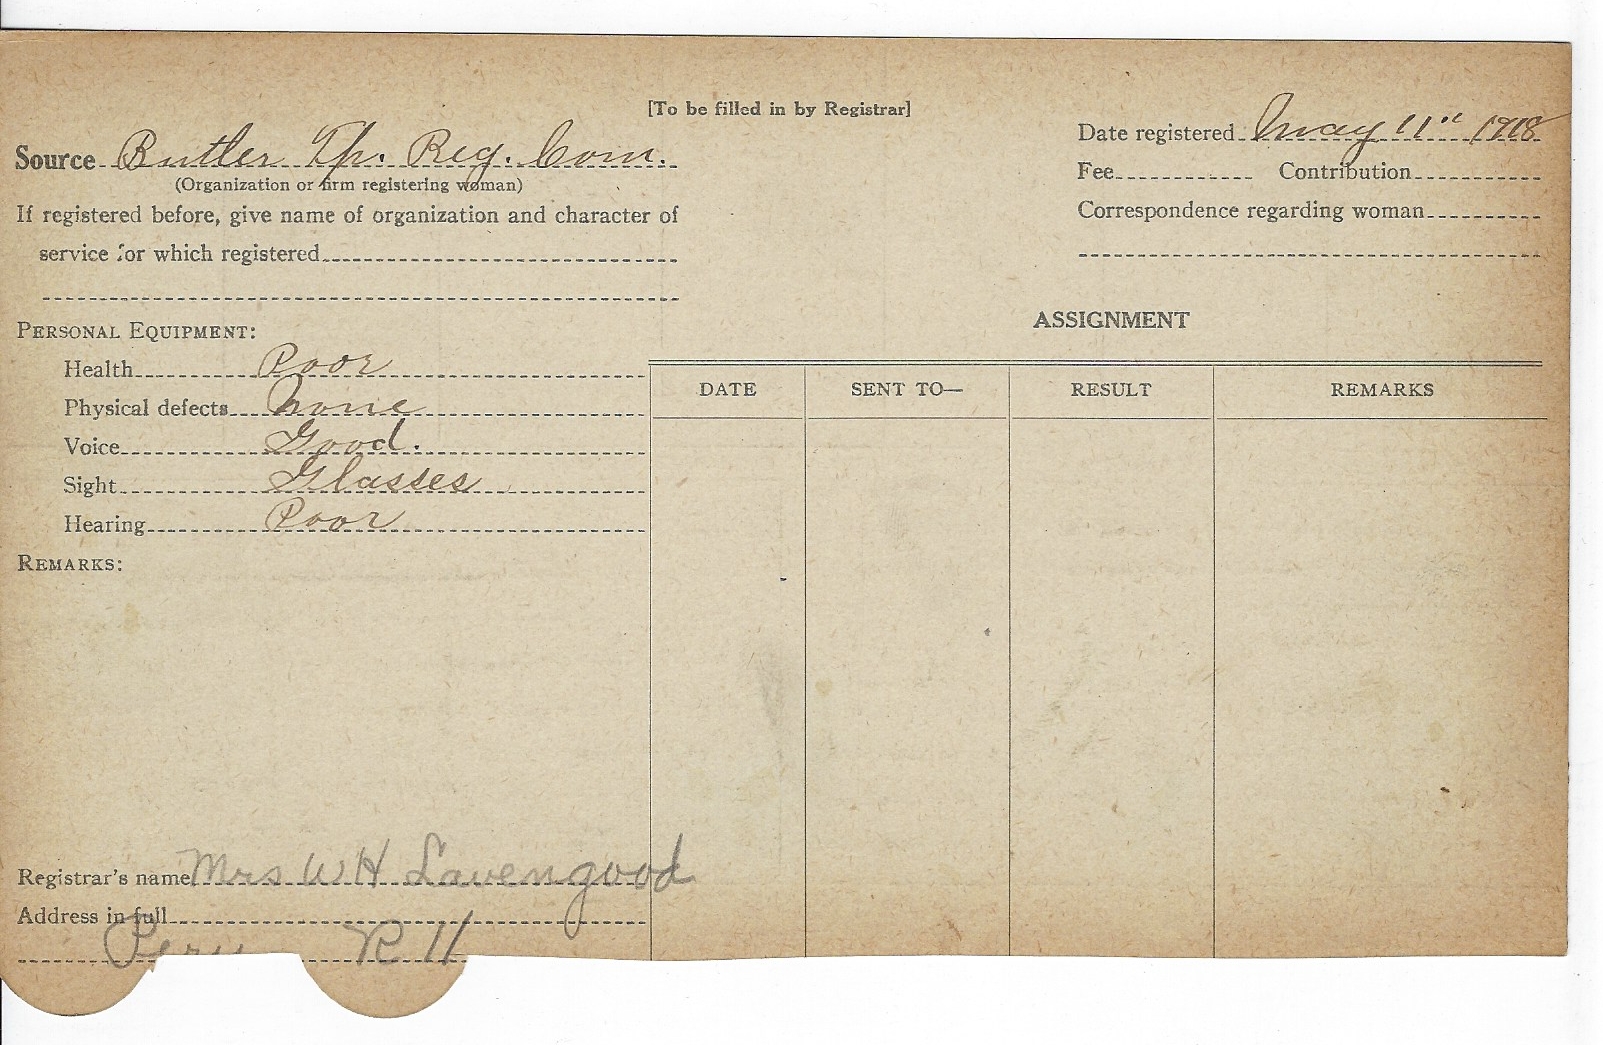 [To be filled in by Registrar]
Source Butler Tp. Reg. Com.
(Organization or firm registering woman)
If registered before, give name of organization and character of
service for which registered
Date registered May 11" 1918
Fee Contribution
Correspondence regarding woman
PERSONAL EQUIPMENT:
Health Poor
Physical defects None
Voice Good.
Sight Glasses
Hearing Poor
REMARKS:
ASSIGNMENT
DATE SENT TO— RESULT REMARKS
Registrar's name Mrs W H Lavengood
Address in full
Peru R 11